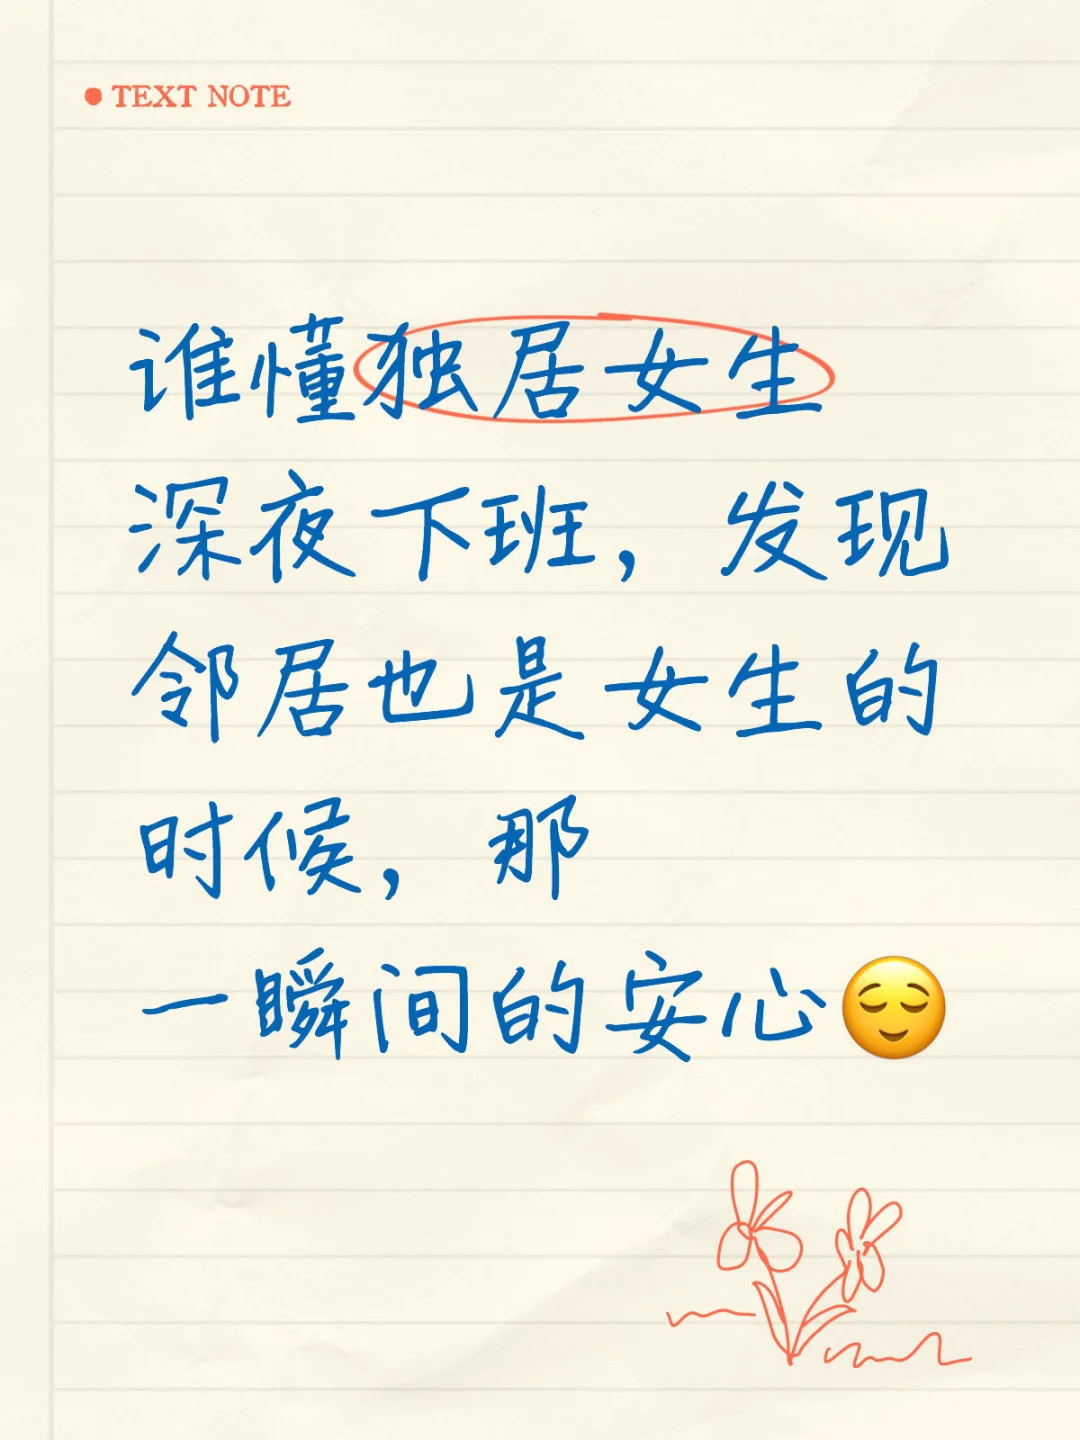 TEXT NOTE
谁懂独居女生
深夜下班，发现
邻居也是女生的
时候，那
一瞬间的安心😌